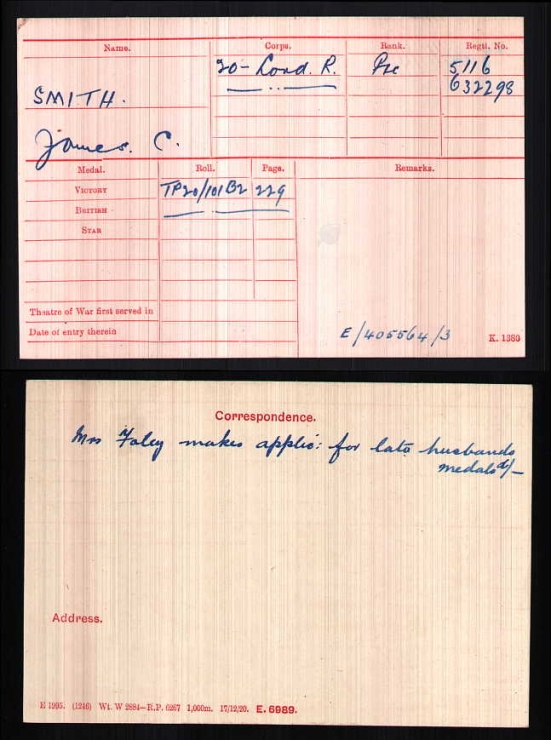 Name. Corps. Rank. Regtl. No.
20- Lond. R. Pte 5116
632298
SMITH.
James. C.
Medal. Roll. Page. Remarks.
VICTORY TP20/101B2 229
BRITISH
STAR
Theatre of War first served in
Date of entry therein
E/405564/3 K. 1380
Correspondence.
Mrs Foley makes applic: for late husbands
medals
Address.
E 1905. (1246) Wt. W 2884—R.P. 6267 1,000m. 17/12/20. E. 6989.